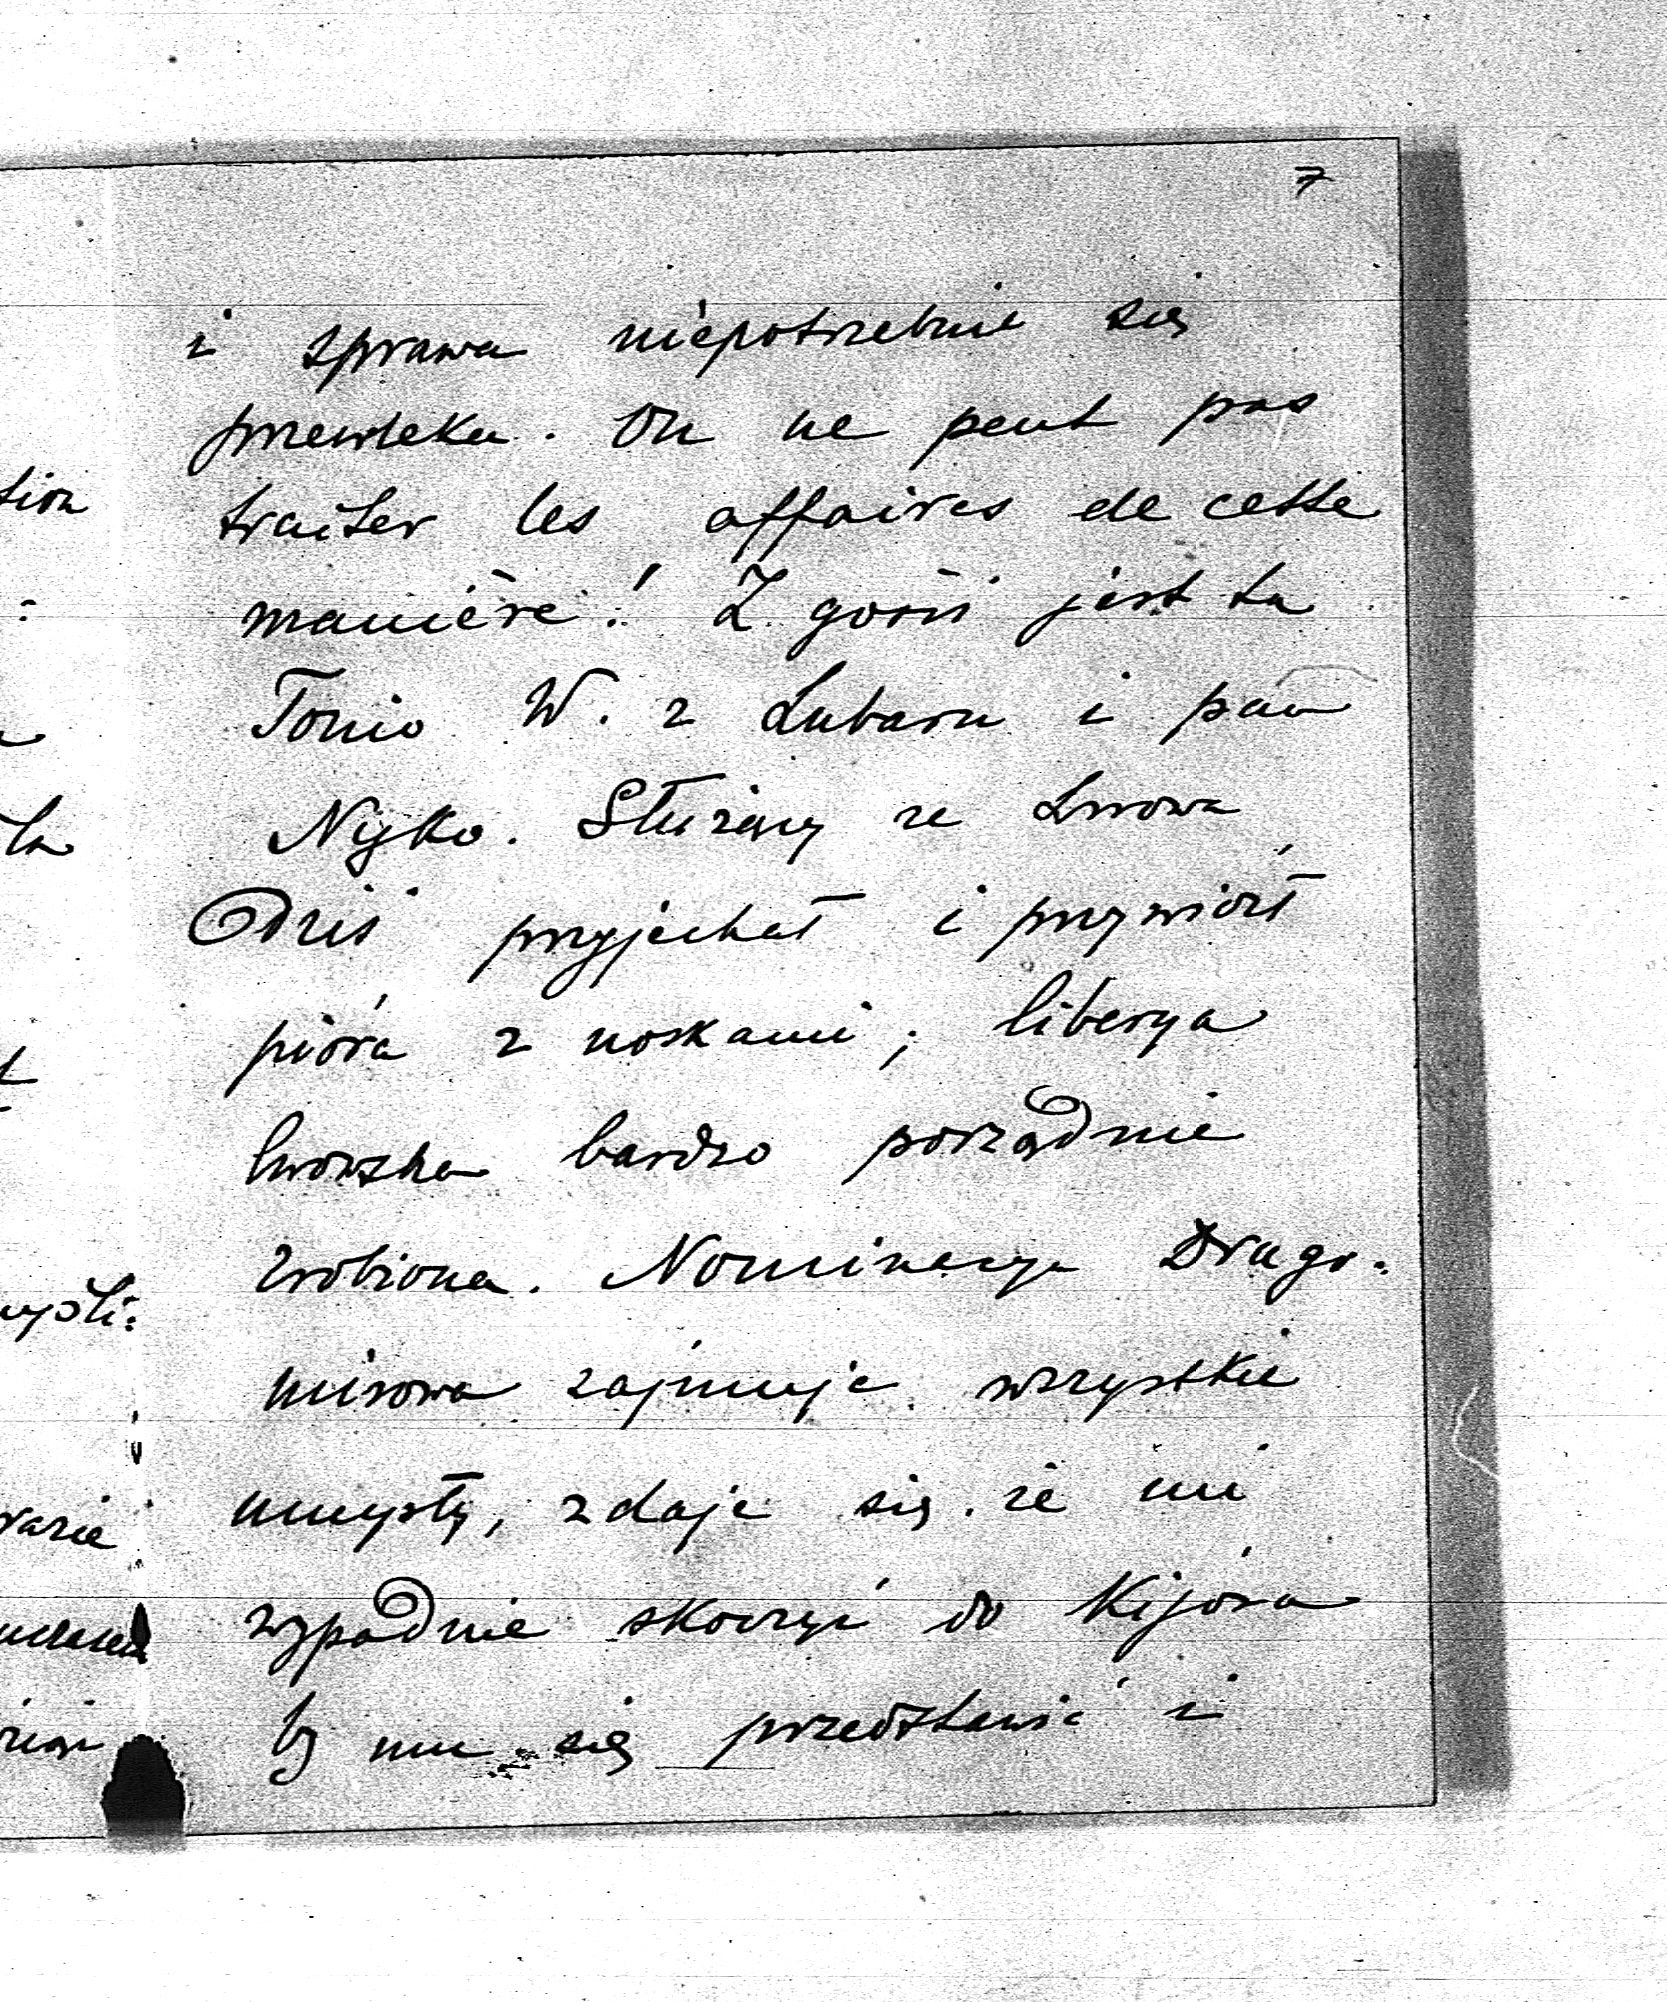 7
i sprawa niepotrzebnie się
przewleka. On ne peut pas
traiter les affaires de cette
manière! Z gości jest tu
Tonio W. z Lubaru i pan
Nyko. Służący ze Lwowa
Dziś przyjechał i przywiózł
pióra z noskami; liberya
lwowska bardzo porządnie
zrobiona. Nominacya Drago-
mirowa zajmuje wszystkie
umysły, zdaje się że mi
wypadnie skoczyć do Kijowa
by mu się przedstawić i